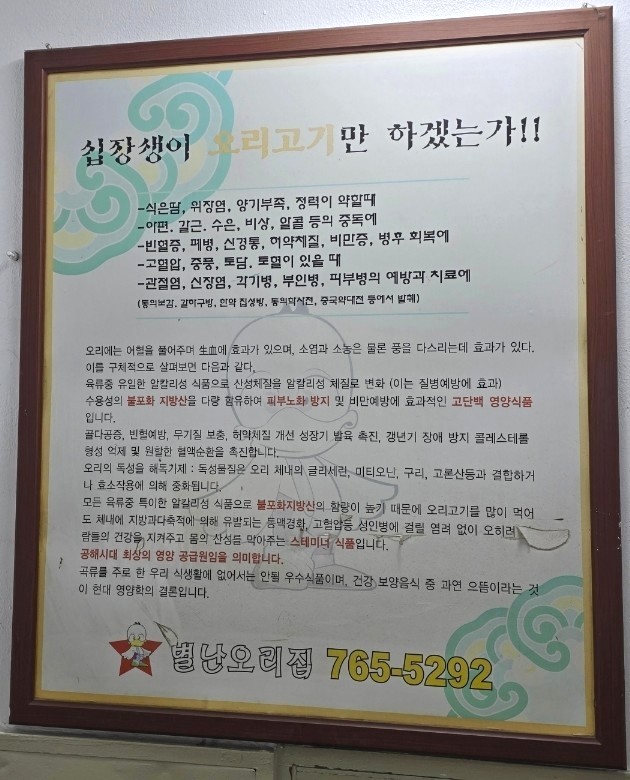 십장생이 오리고기만 하겠는가!!
-식은땀, 위장염, 양기부족, 정력이 약할때
-아편, 갈근, 수은, 비상, 알콜 등의 중독에
-빈혈증, 폐병, 신경통, 허약체질, 비만증, 병후 회복에
-고혈압, 중풍, 토담, 토혈이 있을 때
-관절염, 신장염, 각기병, 부인병, 피부병의 예방과 치료에
(동의보감, 갈하구방, 한약 집성방, 동의학사전, 중국약대전 등에서 발췌)
오리에는 어혈을 풀어주며 生血에 효과가 있으며, 소염과 소농은 물론 풍을 다스리는데 효과가 있다.
이를 구체적으로 살펴보면 다음과 같다.
육류중 유일한 알칼리성 식품으로 산성체질을 알칼리성 체질로 변화 (이는 질병예방에 효과)
수용성의 불포화 지방산을 다량 함유하여 피부노화 방지 및 비만예방에 효과적인 고단백 영양식품
입니다.
골다공증, 빈혈예방, 무기질 보충, 허약체질 개선 성장기 발육 촉진, 갱년기 장애 방지 콜레스테롤
형성 억제 및 원활한 혈액순환을 촉진합니다.
오리의 독성을 해독기제 : 독성물질은 오리 체내의 글리세란, 미티오닌, 구리, 고론산등과 결합하거
나 효소작용에 의해 중화됩니다.
모든 육류중 특이한 알칼리성 식품으로 불포화지방산의 함량이 높기 때문에 오리고기를 많이 먹어
도 체내에 지방과다축적에 의해 유발되는 동맥경화, 고혈압등 성인병에 걸릴 염려 없이 오히려
람들의 건강을 지켜주고 몸의 산성를 막아주는 스테미너 식품입니다.
공해시대 최상의 영양 공급원임을 의미합니다.
곡류를 주로 한 우리 식생활에 없어서는 안될 우수식품이며, 건강 보양음식 중 과연 으뜸이라는 것
이 현대 영양학의 결론입니다.
별난오리집 765-5292